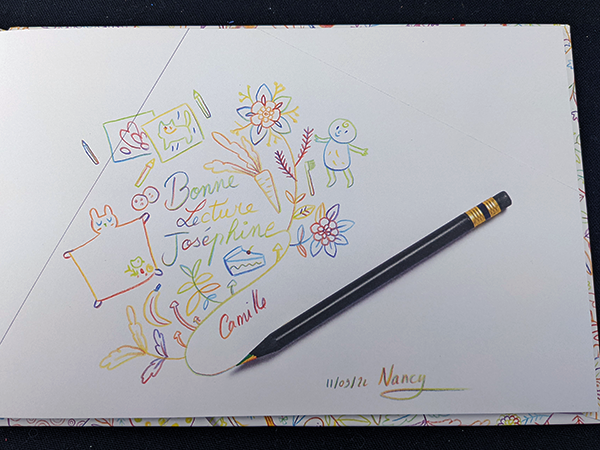 Bonne
Lecture
Joséphine
Camille
11/03/21 Nancy